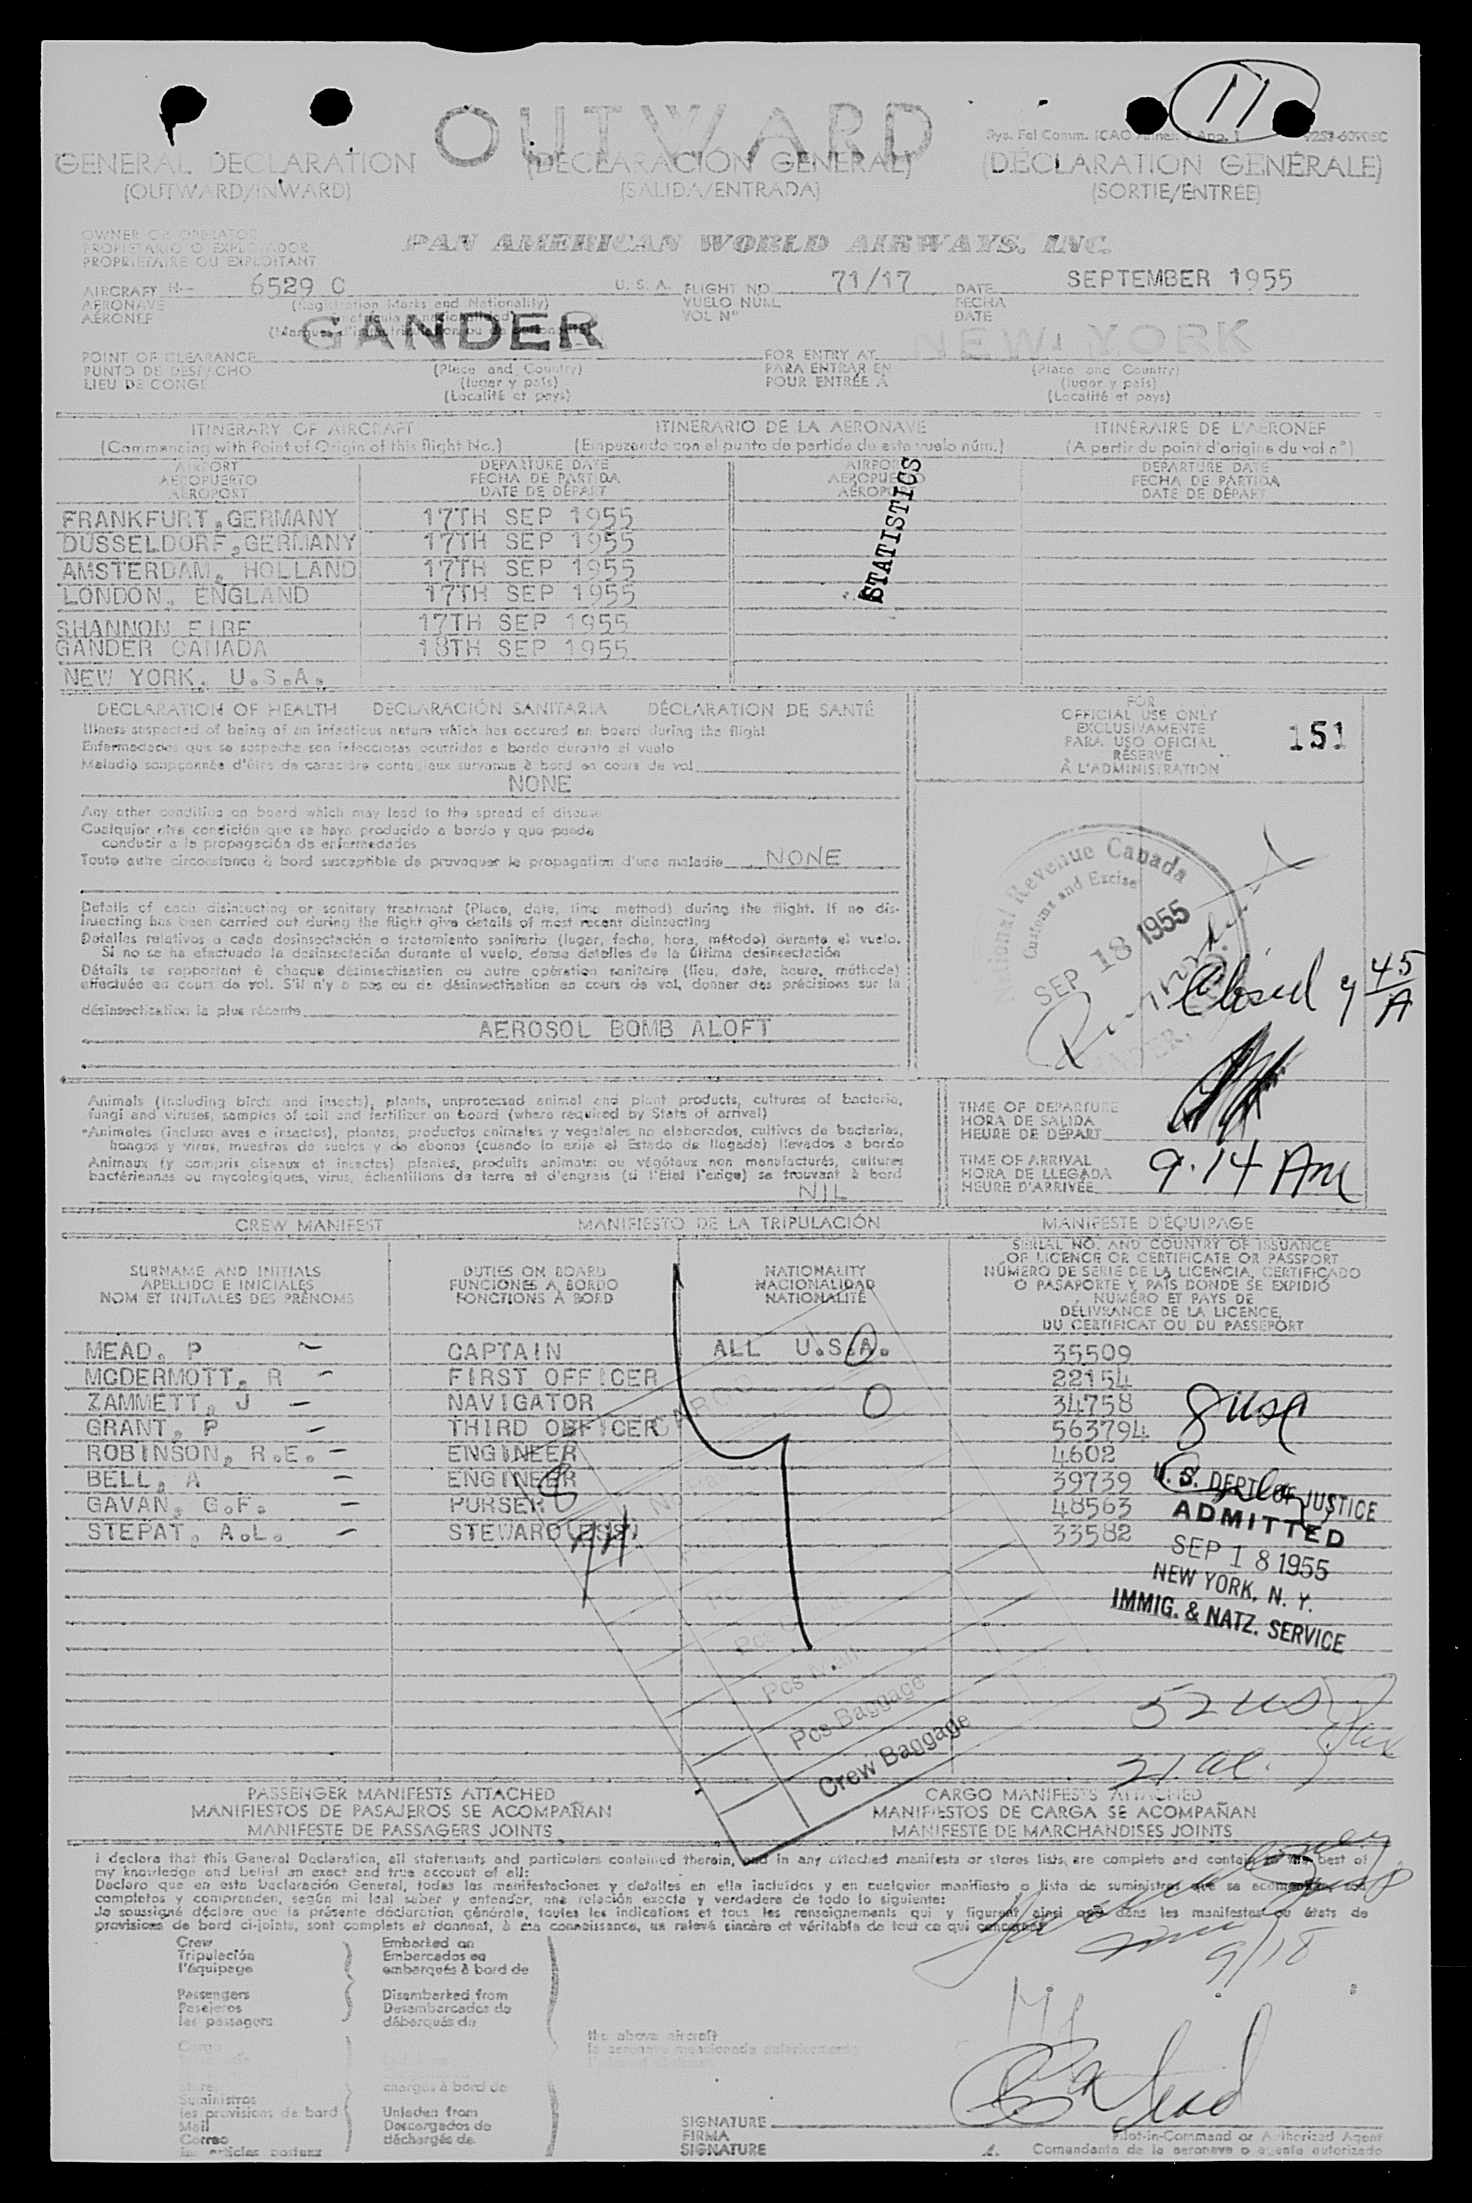 11
OUTWARD
GENERAL DECLARATION (DECLARACIÓN GENERAL) (DÉCLARATION GÉNÉRALE)
(OUTWARD/INWARD) (SALIDA/ENTRADA) (SORTIE/ENTRÉE)
OWNER OR OPERATOR
PROPIETARIO O EXPLOTADOR
PROPRIETAIRE OU EXPLOITANT
PAN AMERICAN WORLD AIRWAYS, INC.
AIRCRAFT N— 6529 C U. S. A. FLIGHT NO. 71/17 DATE SEPTEMBER 1955
AERONAVE (Registration Marks and Nationality) VUELO NÚM. FECHA
AÉRONEF VOL Nº DATE
GANDER
NEW YORK
POINT OF CLEARANCE FOR ENTRY AT
PUNTO DE DESPACHO (Place and Country) PARA ENTRAR EN (Place and Country)
LIEU DE CONGÉ (lugar y país) POUR ENTRÉE À (lugar y país)
(Localité et pays) (Localité et pays)
ITINERARY OF AIRCRAFT ITINERARIO DE LA AERONAVE ITINÉRAIRE DE L'AÉRONEF
(Commencing with Point of Origin of this flight No.) (Empezando con el punto de partida de este vuelo núm.) (A partir du point d'origine du vol nº)
AIRPORT DEPARTURE DATE AIRPORT DEPARTURE DATE
AEROPUERTO FECHA DE PARTIDA AEROPUERTO FECHA DE PARTIDA
AÉROPORT DATE DE DÉPART AÉROPORT DATE DE DÉPART
STATISTICS
FRANKFURT,GERMANY 17TH SEP 1955
DUSSELDORF,GERMANY 17TH SEP 1955
AMSTERDAM, HOLLAND 17TH SEP 1955
LONDON, ENGLAND 17TH SEP 1955
SHANNON EIRE 17TH SEP 1955
GANDER CANADA 18TH SEP 1955
NEW YORK, U.S.A.
DECLARATION OF HEALTH DECLARACIÓN SANITARIA DÉCLARATION DE SANTÉ
Illness suspected of being of an infectious nature which has occured on board during the flight
Enfermedades que se sospecha son infecciosas ocurridas a bordo durante el vuelo
Maladie soupçonnée d'être de caractère contagieux survenue à bord en cours de vol
NONE
FOR
OFFICIAL USE ONLY
EXCLUSIVAMENTE
PARA USO OFICIAL
RÉSERVÉ
À L'ADMINISTRATION
151
Any other condition on board which may lead to the spread of disease
Cualquier otra condición que se haya producido a bordo y que pueda
conducir a la propagación de enfermedades
Toute autre circonstance à bord susceptible de provoquer la propagation d'une maladie NONE
Details of each disinsecting or sanitary treatment (Place, date, time, method) during the flight. If no dis-
insecting has been carried out during the flight give details of most recent disinsecting
Detalles relativos a cada desinsectación o tratamiento sanitario (lugar, fecha, hora, método) durante el vuelo.
Si no se ha efectuado la desinsectación durante el vuelo, dense detalles de la última desinsectación
Détails se rapportant à chaque désinsectisation ou autre opération sanitaire (lieu, date, heure, méthode)
effectuée en cours de vol. S'il n'y a pas eu de désinsectisation en cours de vol, donner des précisions sur la
désinsectisation la plus récente
AEROSOL BOMB ALOFT
National Revenue Canada
Customs and Excise
SEP 18 1955
GANDER,
Closed 9 45/A
Animals (including birds and insects), plants, unprocessed animal and plant products, cultures of bacteria,
fungi and viruses, samples of soil and fertilizer on board (where required by State of arrival)
Animales (incluso aves e insectos), plantas, productos animales y vegetales no elaborados, cultivos de bacterias,
hongos y virus, muestras de suelos y de abonos (cuando lo exija el Estado de llegada) llevados a bordo
Animaux (y compris oiseaux et insectes) plantes, produits animaux ou végétaux non manufacturés, cultures
bactériennes ou mycologiques, virus, échantillons de terre et d'engrais (si l'État l'exige) se trouvant à bord
NIL
TIME OF DEPARTURE
HORA DE SALIDA
HEURE DE DÉPART
TIME OF ARRIVAL
HORA DE LLEGADA
HEURE D'ARRIVÉE
9.14 AM
CREW MANIFEST MANIFIESTO DE LA TRIPULACIÓN MANIFESTE D'ÉQUIPAGE
SURNAME AND INITIALS
APELLIDO E INICIALES
NOM ET INITIALES DES PRÉNOMS
DUTIES ON BOARD
FUNCIONES A BORDO
FONCTIONS À BORD
NATIONALITY
NACIONALIDAD
NATIONALITÉ
SERIAL NO. AND COUNTRY OF ISSUANCE
OF LICENCE OR CERTIFICATE OR PASSPORT
NÚMERO DE SERIE DE LA LICENCIA, CERTIFICADO
O PASAPORTE Y PAÍS DONDE SE EXPIDIÓ
NUMÉRO ET PAYS DE
DÉLIVRANCE DE LA LICENCE,
DU CERTIFICAT OU DU PASSEPORT
MEAD, P CAPTAIN ALL U.S.A. 35509
MCDERMOTT, R FIRST OFFICER 22154
ZAMMETT, J NAVIGATOR 34758
GRANT, P THIRD OFFICER 563794
ROBINSON, R.E. ENGINEER 4602
BELL, A ENGINEER 39739
GAVAN, G.F. PURSER 48563
STEPAT, A.L. STEWARD(ESS) 33582
8 usc
U. S. DEPT. OF JUSTICE
ADMITTED
SEP 18 1955
NEW YORK, N. Y.
IMMIG. & NATZ. SERVICE
CARGO
Pcs Mail
Pcs Baggage
Crew Baggage
52 US
21 al.
PASSENGER MANIFESTS ATTACHED CARGO MANIFESTS ATTACHED
MANIFIESTOS DE PASAJEROS SE ACOMPAÑAN MANIFIESTOS DE CARGA SE ACOMPAÑAN
MANIFESTE DE PASSAGERS JOINTS MANIFESTE DE MARCHANDISES JOINTS
I declare that this General Declaration, all statements and particulars contained therein, and in any attached manifests or stores lists, are complete and contain to the best of
my knowledge and belief an exact and true account of all:
Declaro que en esta Declaración General, todas las manifestaciones y detalles en ella incluidos y en cualquier manifiesto o lista de suministros que se acompañan, son
completos y comprenden, según mi leal saber y entender, una relación exacta y verdadera de todo lo siguiente:
Je soussigné déclare que la présente déclaration générale, toutes les indications et tous les renseignements qui y figurent ainsi que dans les manifestes ou états de
provisions de bord ci-joints, sont complets et donnent, à ma connaissance, un relevé sincère et véritable de tout ce qui concerne:
9/18
Crew Embarked on
Tripulación Embarcados en
l'équipage embarqués à bord de
Passengers Disembarked from
Pasajeros Desembarcados de
les passagers débarqués de
the above aircraft
Cargo
chargés à bord de
Suministros
les provisions de bord Unladen from
Mail Descargados de
Correo déchargés de
les articles postaux
SIGNATURE
FIRMA
SIGNATURE
Pilot-in-Command or Authorized Agent
Comandante de la aeronave o agente autorizado